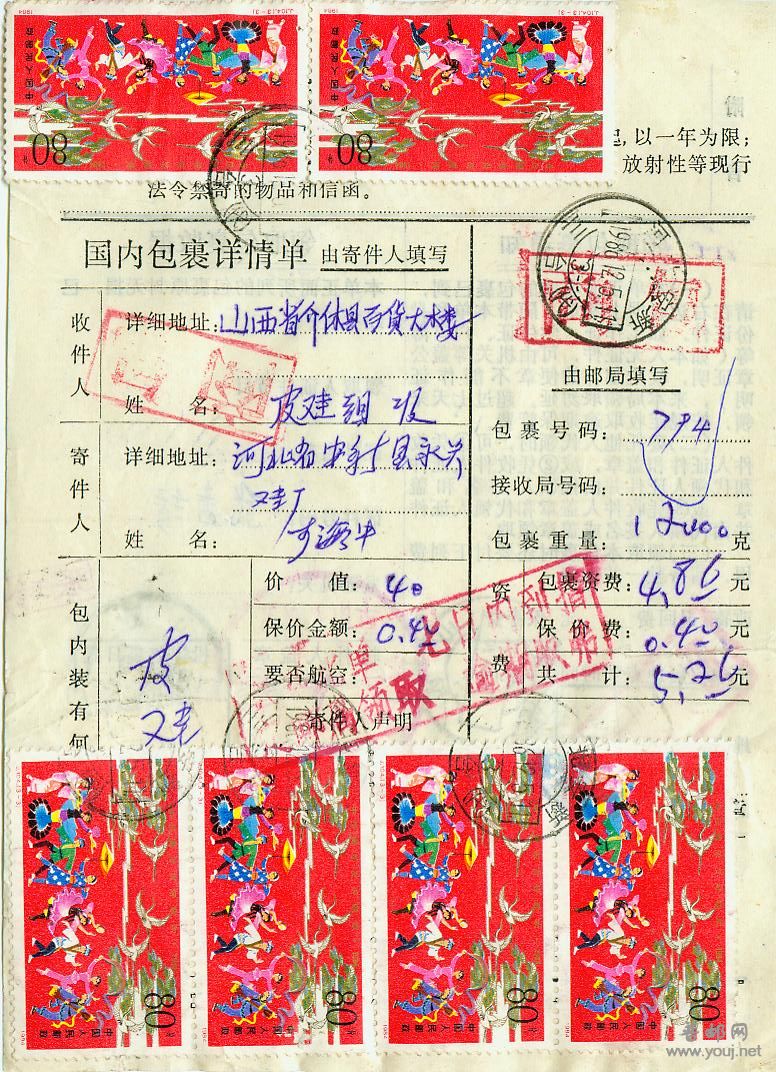 1984 J.104.(3-3)
1984 J.104.(3-3)
中国人民邮政
中国人民邮政
80分
80分
以一年为限;
放射性等现行
法令禁寄的物品和信函。
国内包裹详情单 由寄件人填写
1986.12.5
收件人
详细地址: 山西省介休县百货大楼
姓 名: 皮鞋组 收
由邮局填写
包裹号码: 794
接收局号码:
包裹重量: 12400 克
寄件人
详细地址: 河北省安新县
姓 名:
包内装有何
皮
价 值: 40
保价金额: 0.40
要否航空:
资费
包裹资费: 4.86 元
保价费: 0.40 元
共 计: 5.26 元
日内到指
单
领取
逾期
寄件人声明
J.104.(3-3)
J.104.(3-3)
J.104.(3-3)
J.104.(3-3)
80分
80分
80分
80分
中国人民邮政
中国人民邮政
中国人民邮政
中国人民邮政
1984
1984
1984
1984
www.youj.net